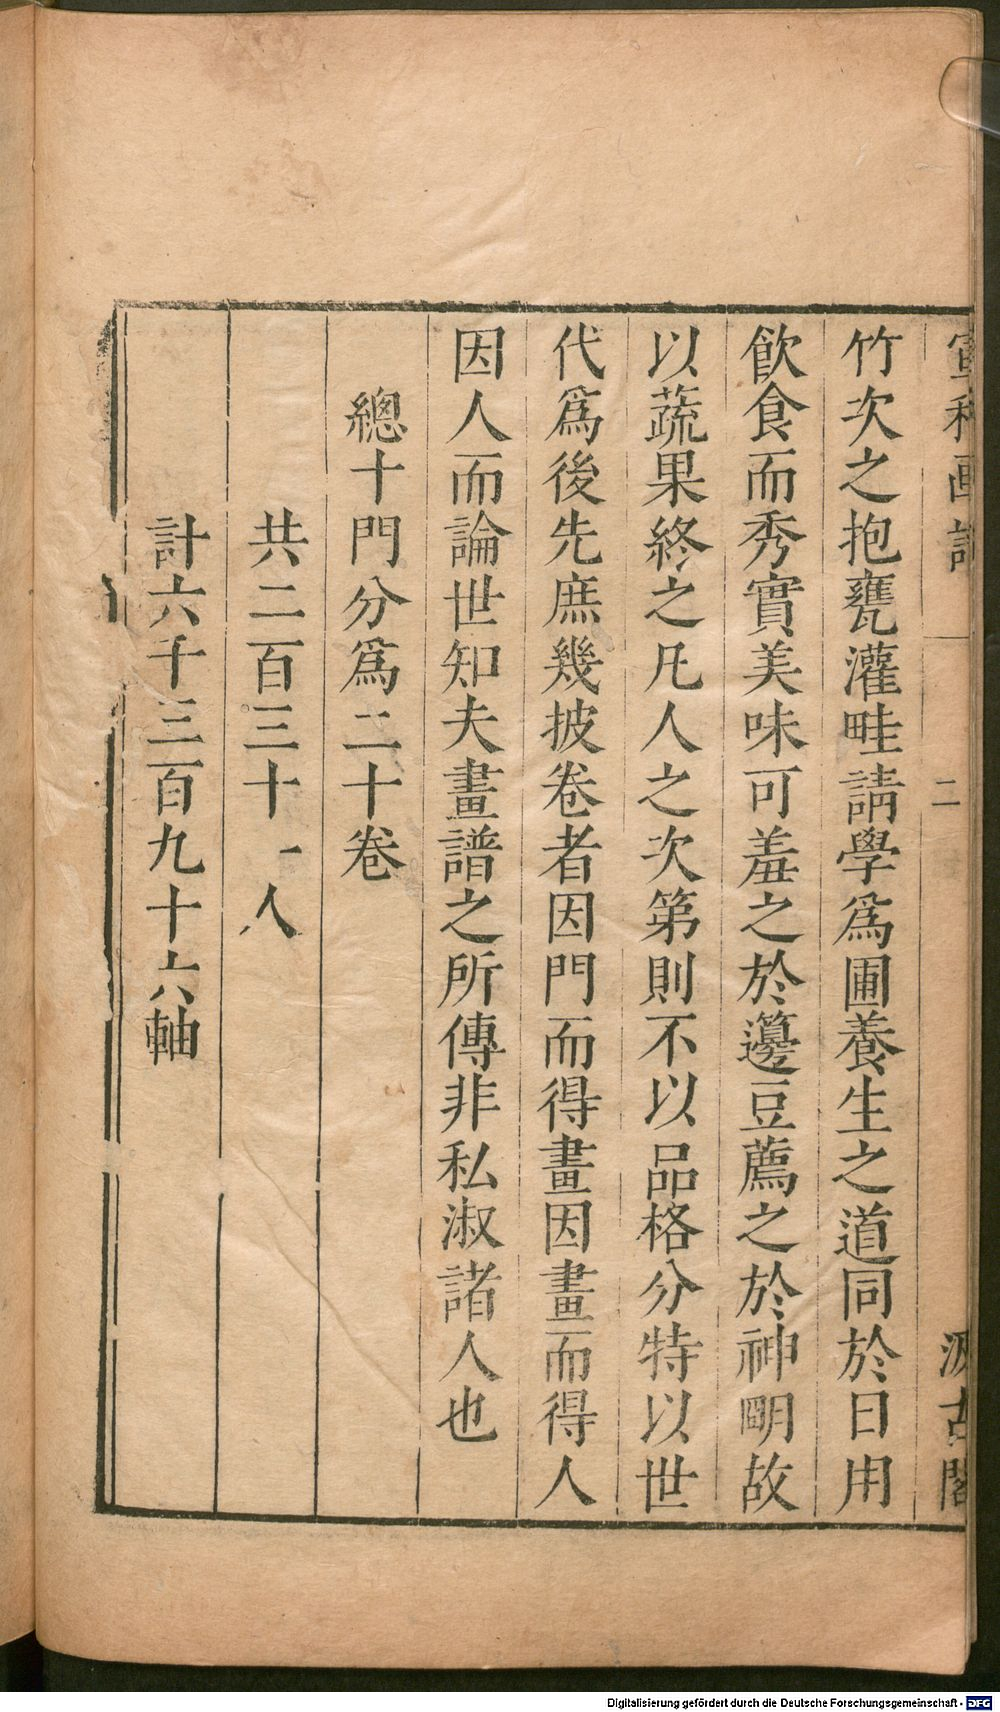 宣和画譜 二 汲古閣
竹次之抱甕灌畦請學爲圃養生之道同於日用
飲食而秀實美味可羞之於籩豆薦之於神明故
以蔬果終之凡人之次第則不以品格分特以世
代爲後先庶幾披卷者因門而得畫因畫而得人
因人而論世知夫畫譜之所傳非私淑諸人也
總十門分爲二十卷
共二百三十一人
計六千三百九十六軸
Digitalisierung gefördert durch die Deutsche Forschungsgemeinschaft - DFG